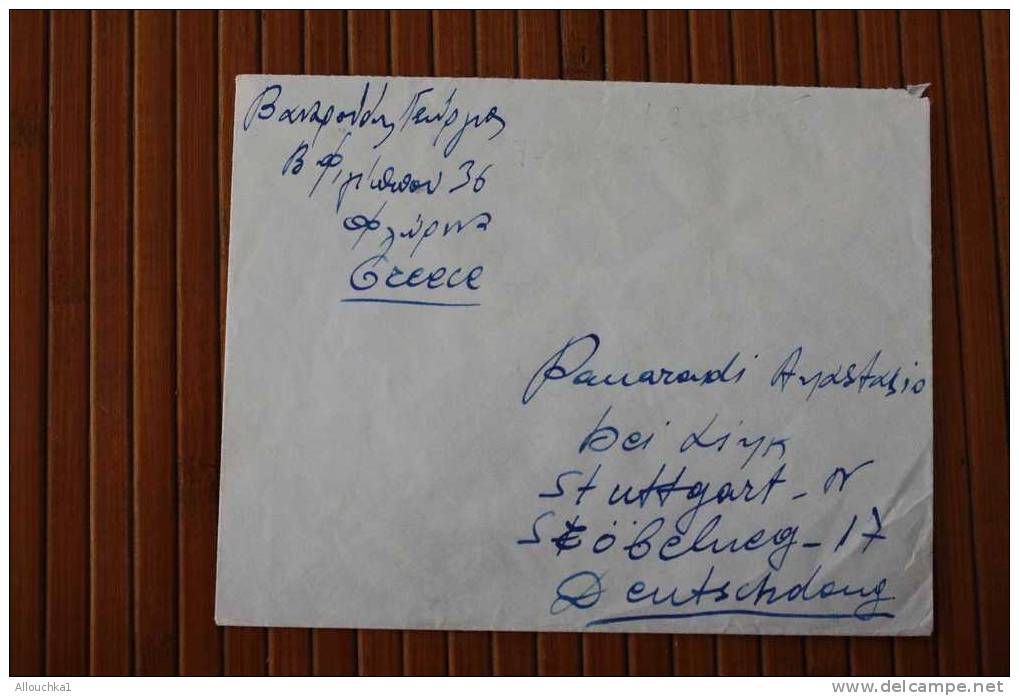 Βαντρούδης Γεώργιος
Β Φιλίππου 36
Φλώρινα
Greece
Panaradi Anastasio
bei Link
Stuttgart-N
Stöbelweg-17
Deutschdang
Allouchka1
www.delcampe.net